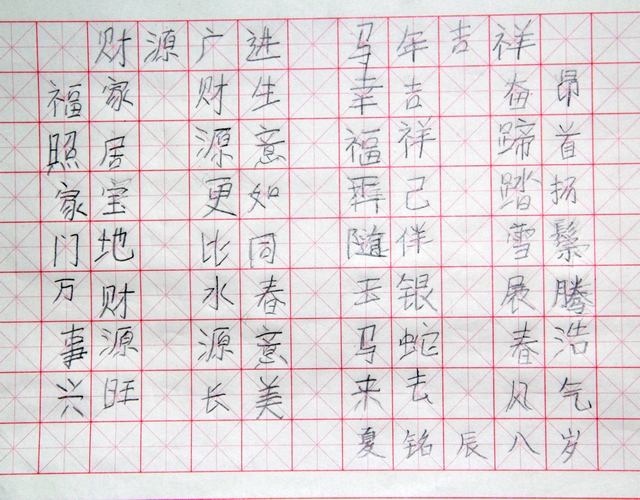 马年吉祥
昂首扬鬃腾浩气
奋蹄踏雪展春风
吉祥己伴银蛇去
幸福再随玉马来
财源广进
生意如同春意美
财源更比水源长
家居宝地财源旺
福照家门万事兴
夏铭辰八岁